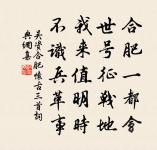 合肥一都會
世号征戰地
我来值明時
不識兵革事
吳資合肥懷古三首詞
典網集